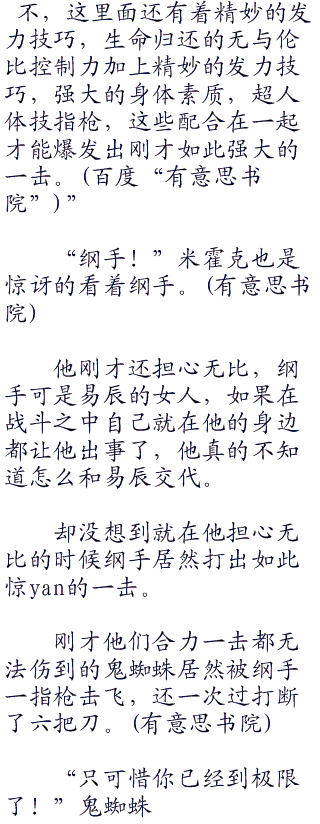 不，这里面还有着精妙的发
力技巧，生命归还的无与伦
比控制力加上精妙的发力技
巧，强大的身体素质，超人
体技指枪，这些配合在一起
才能爆发出刚才如此强大的
一击。(百度“有意思书
院”)”
“纲手！”米霍克也是
惊讶的看着纲手。(有意思书
院)
他刚才还担心无比，纲
手可是易辰的女人，如果在
战斗之中自己就在他的身边
都让他出事了，他真的不知
道怎么和易辰交代。
却没想到就在他担心无
比的时候纲手居然打出如此
惊yan的一击。
刚才他们合力一击都无
法伤到的鬼蜘蛛居然被纲手
一指枪击飞，还一次过打断
了六把刀。(有意思书院)
“只可惜你已经到极限
了！”鬼蜘蛛